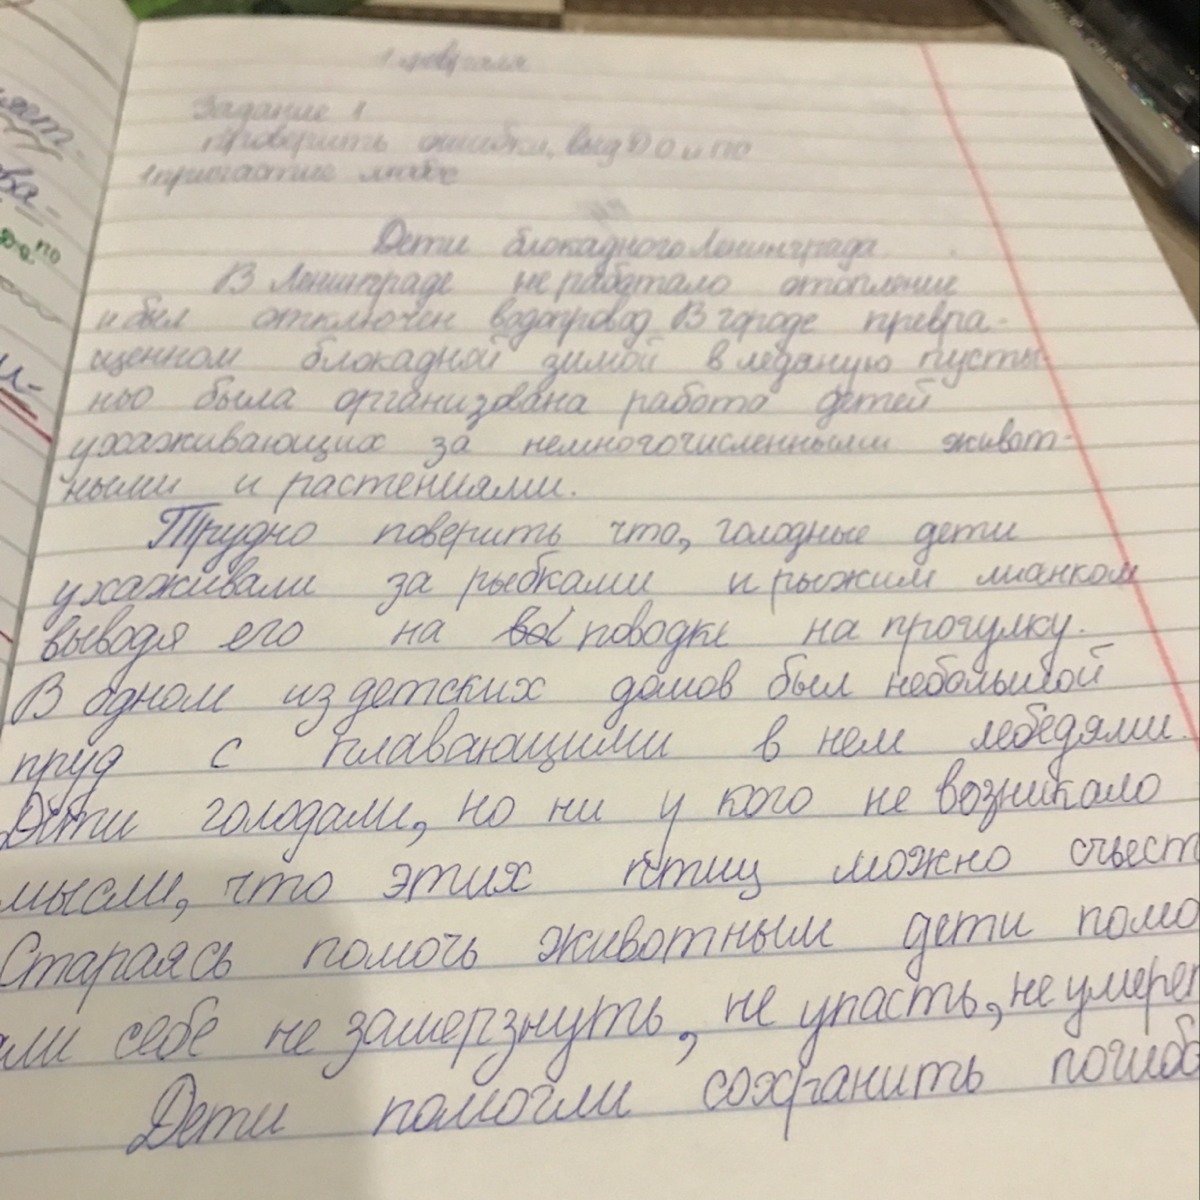 1 февраля
Задание 1
Проверить ошибки, выд ДО и ПО
1 причастие
Дети блокадного Ленинграда
В Ленинграде не работало отопление
и был отключен водопровод. В городе превра-
щенном блокадной зимой в ледяную пусты-
ню была организована работа детей
ухаживающих за немногочисленными живот-
ными и растениями.
Трудно поверить что, голодные дети
ухаживали за рыбками и рыжим
выводя его на поводке на прогулку.
В одном из детских домов был небольшой
пруд с плавающими в нем лебедями.
Дети голодали, но ни у кого не возникало
мысли, что этих птиц можно съест
Стараясь помочь животным дети помо
али себе не замерзнуть, не упасть, не умерет
Дети помогли сохранить погиба
ли-
по